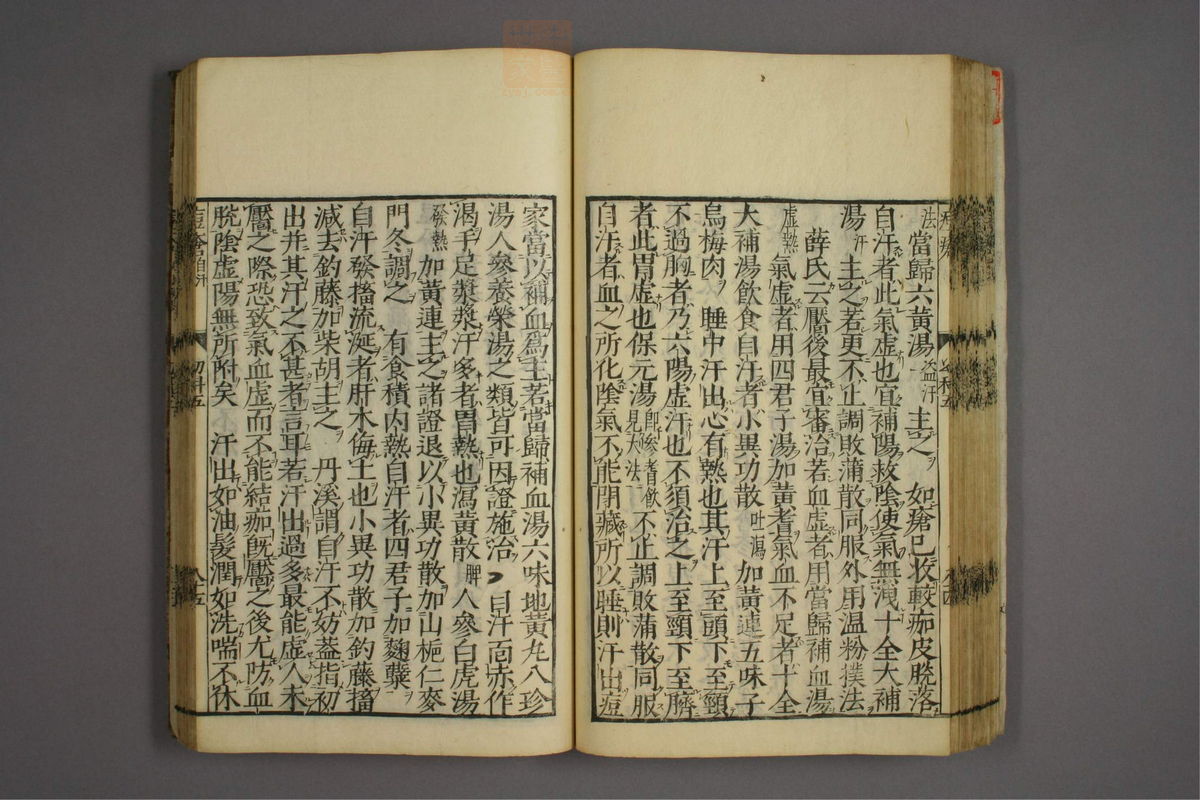 法當歸六黃湯盗汗主之 如瘡已收較痂皮脫落
自汗者此氣虛也宜補陽救陰使氣無洩十全大補
湯汗主之若更不止調敗蒲散同服外用温粉撲法
薛氏云靨後最宜審治若血虛者用當歸補血湯
虛熱氣虛者用四君子湯加黃耆氣血不足者十全
大補湯飲食自汗者小異功散吐瀉加黃連五味子
烏梅肉 睡中汗出心有熱也其汗上至頭下至頸
不過胸者乃六陽虛汗也不須治之上至頸下至臍
者此胃虛也保元湯即參耆飲見大法不止調敗蒲散同服
自汗者血之所化陰氣不能閉藏所以睡則汗出痘
家當以補血爲主若當歸補血湯六味地黃丸八珍
湯人參養榮湯之類皆可因證施治 自汗面赤作
渴手足漐漐汗多者胃熱也瀉黃散脾人參白虎湯
發熱加黃連主之諸證退以小異功散加山梔仁麥
門冬調之 有食積内熱自汗者四君子加麴蘗
自汗發搐流涎者肝木侮土也小異功散加釣藤搐
减去釣藤加柴胡主之 丹溪謂自汗不妨蓋指初
出并其汗之不甚者言耳若汗出過多最能虛人未
靨之際恐致氣血虛而不能結痂旣靨之後尤防血
脫陰虛陽無所附矣 汗出如油髮潤如洗喘不休
痘瘡自汗
幼科五